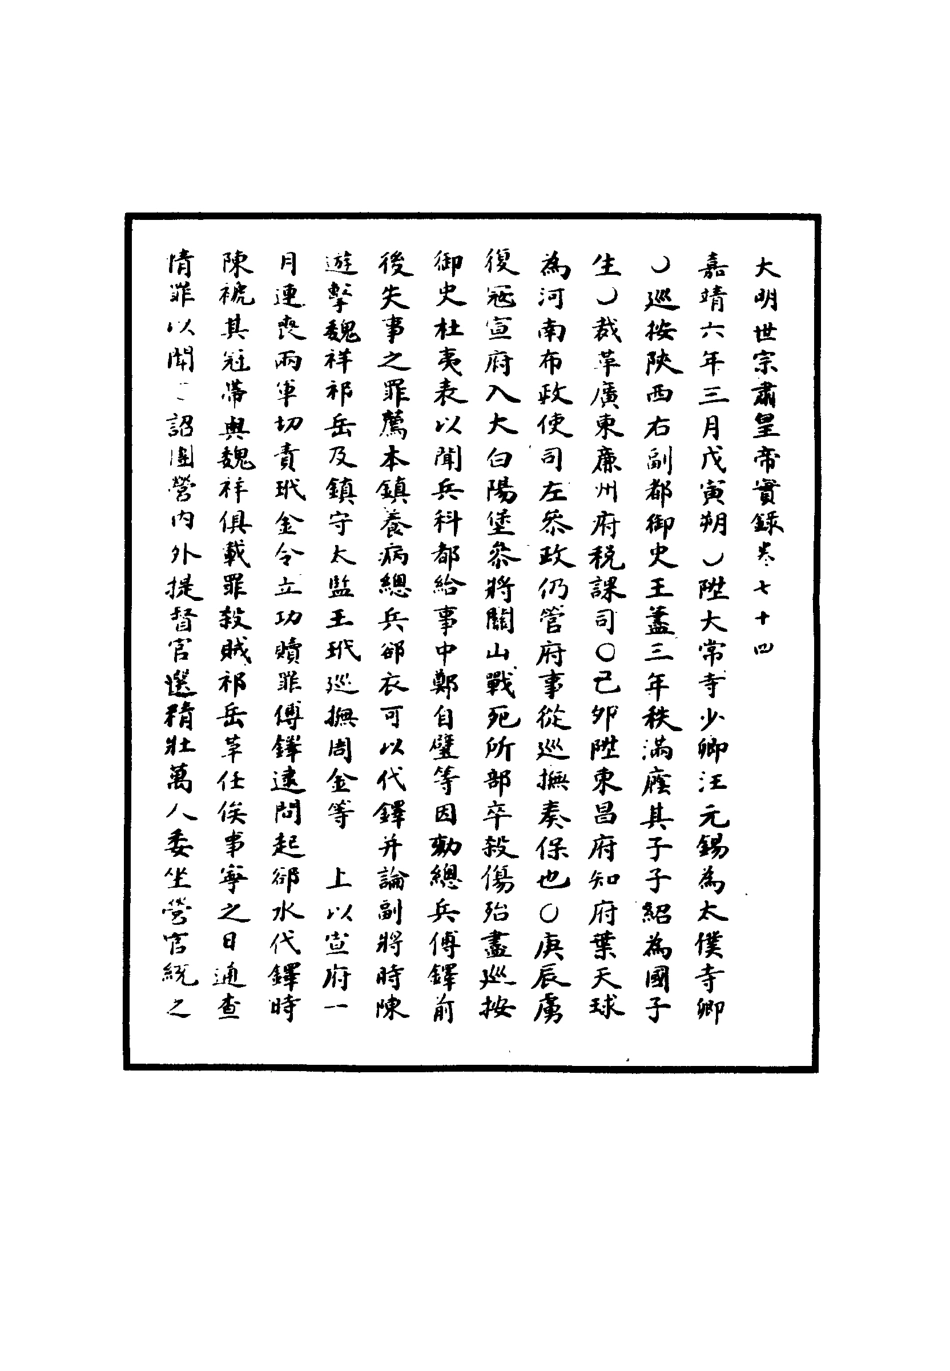 大明世宗肅皇帝實錄卷七十四
嘉靖六年三月戊寅朔○陞大常寺少卿汪元錫為太僕寺卿
○巡按陝西右副都御史王藎三年秩滿廕其子子紹為國子
生○裁革廣東廉州府稅課司○己卯陞東昌府知府葉天球
為河南布政使司左叅政仍管府事從巡撫奏保也○庚辰虜
復寇宣府入大白陽堡叅將關山戰死所部卒殺傷殆盡巡按
御史杜夷表以聞兵科都給事中鄭自璧等因劾總兵傅鐸前
後失事之罪薦本鎮養病總兵郤衣可以代鐸并論副將時陳
遊擊魏祥祁岳及鎮守太監王玳巡撫周金等　上以宣府一
月連喪兩軍切責玳金令立功贖罪傅鐸逮問起郤水代鐸時
陳褫其冠帶與魏祥俱載罪殺賊祁岳革任俟事寧之日通查
情罪以聞〻詔團營內外提督官選精壯萬人委坐營官統之